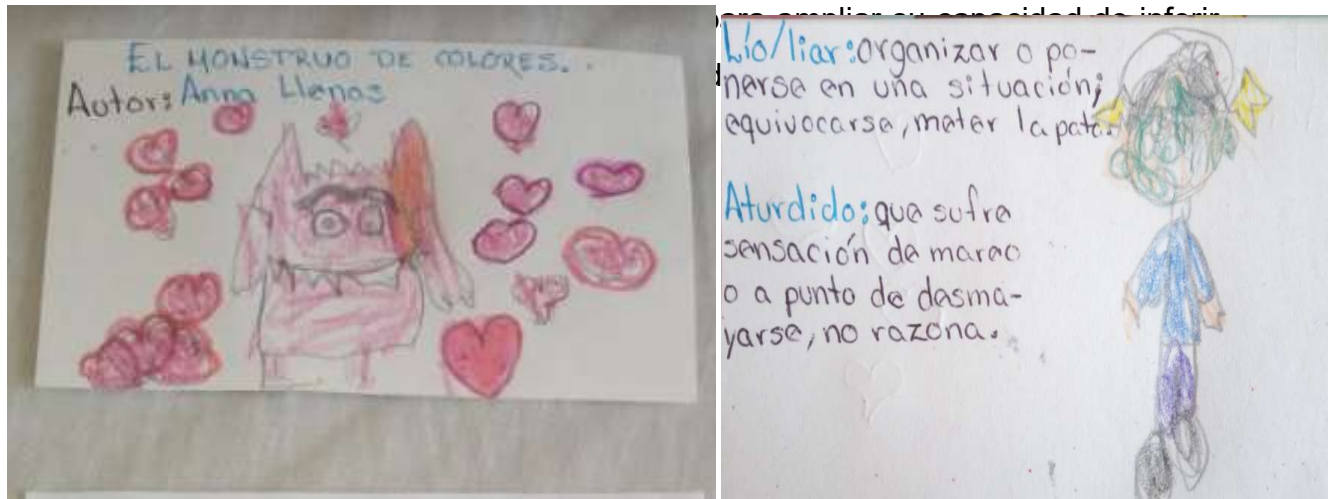 para ampliar su capacidad de inferir
EL MONSTRUO DE COLORES..
Autor: Anna Llenas
Lío/liar: organizar o po-
nerse en una situación;
equivocarse, meter la pata.
Aturdido: que sufre
sensación de mareo
o a punto de desma-
yarse, no razona.